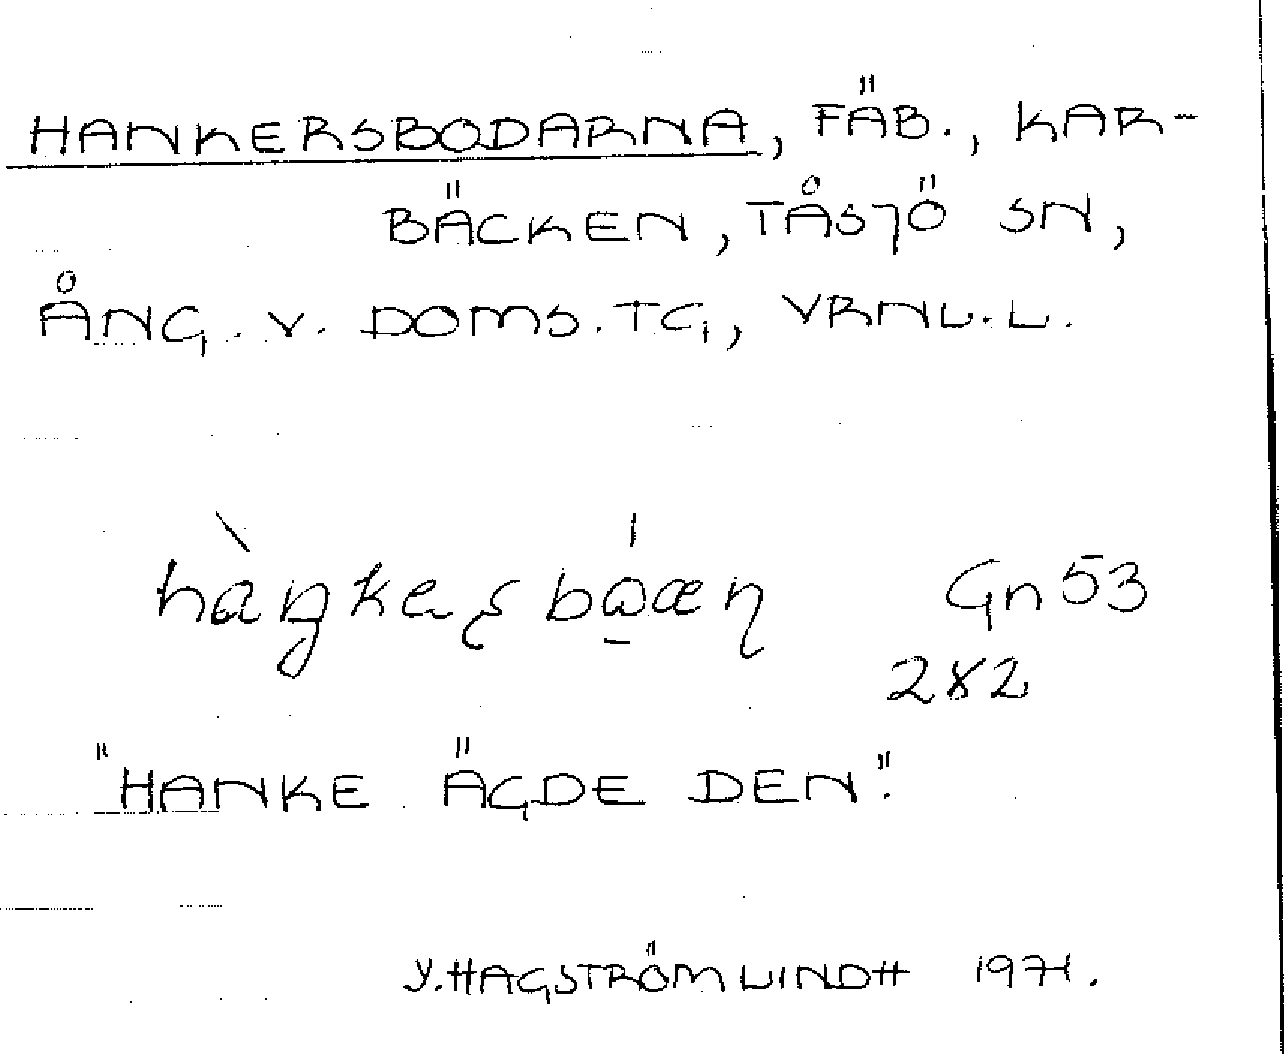 HANKERSBODARNA, FÄB., KAR-
BÄCKEN, TÅSJÖ SN,
ÅNG. V. DOMS. TG, VRNL. L.
Gn 53
2x2
"HANKE ÄGDE DEN".
Y. HAGSTRÖM LINDH 1971.